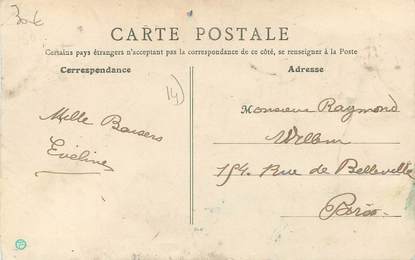 30€
CARTE POSTALE
Certains pays étrangers n'acceptant pas la correspondance de ce côté, se renseigner à la Poste
Correspondance
Adresse
14)
Mille Baisers
Eveline
Monsieur Raymond
Willem
154. Rue de Belleville
Paris